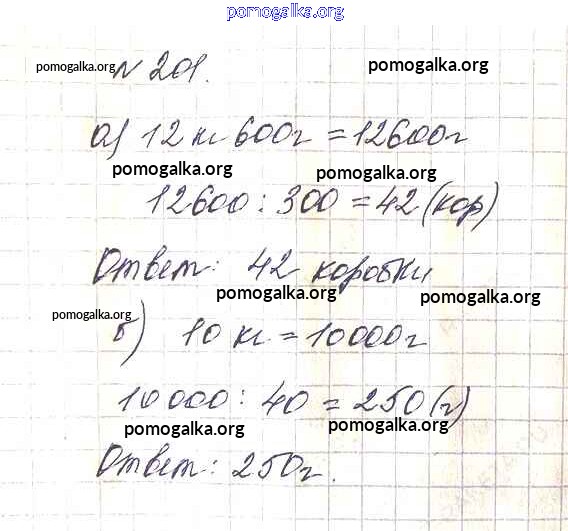 pomogalka.org
pomogalka.org № 201. pomogalka.org
а) 12 кг 600г = 12600г
pomogalka.org pomogalka.org
12600 : 300 = 42 (кор)
Ответ: 42 коробки
pomogalka.org pomogalka.org
pomogalka.org
б) 10 кг = 10000г
10 000 : 40 = 250 (г)
pomogalka.org pomogalka.org
Ответ: 250г.